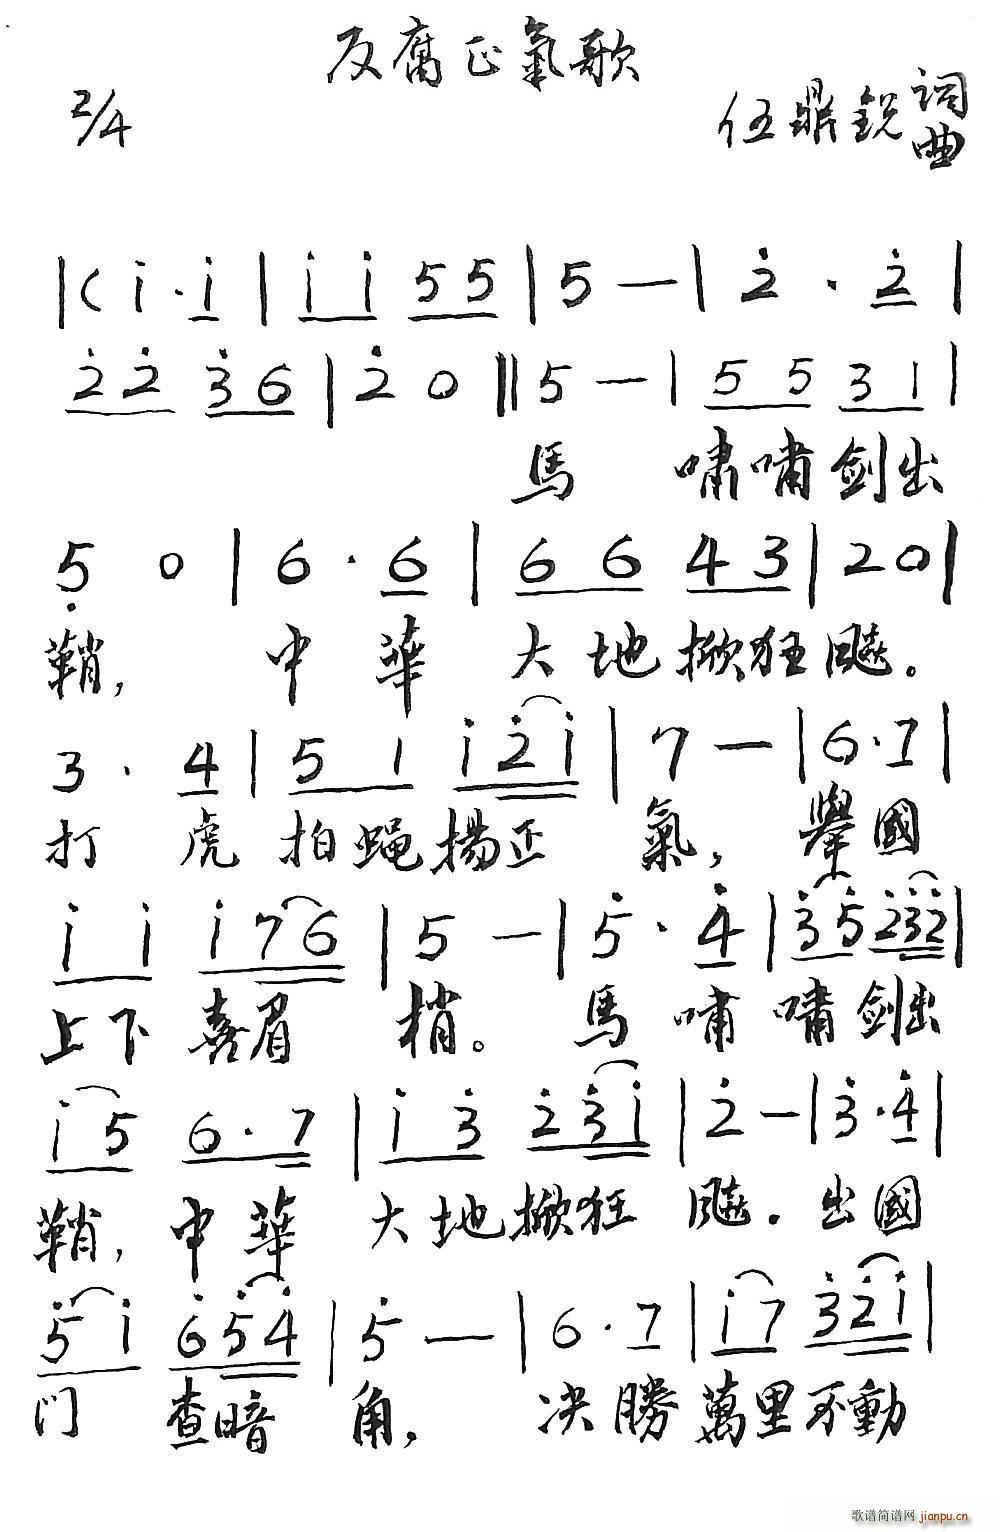 反腐正氣歌
2/4
伍鼎銳 詞曲
|( i · i | i i 5 5 | 5 — | 2 · 2 |
2 2 3 6 | 2 0 || 5 — | 5 5 3 1 |
馬 嘯嘯劍出
5 0 | 6 · 6 | 6 6 4 3 | 2 0 |
鞘, 中華大地掀狂飈。
3 · 4 | 5 1 i 2 i | 7 — | 6 · 7 |
打虎拍蠅揚正氣, 舉國
i i i 7 6 | 5 — | 5 · 4 | 3 5 2 3 2 |
上下喜眉梢。馬嘯嘯劍出
i 5 6 · 7 | i 3 2 3 i | 2 — | 3 · 4 |
鞘, 中華大地掀狂飈. 出國
5 i 6 5 4 | 5 — | 6 · 7 | i 7 3 2 i |
门查暗角, 决勝萬里不動
歌谱简谱网 jianpu.cn